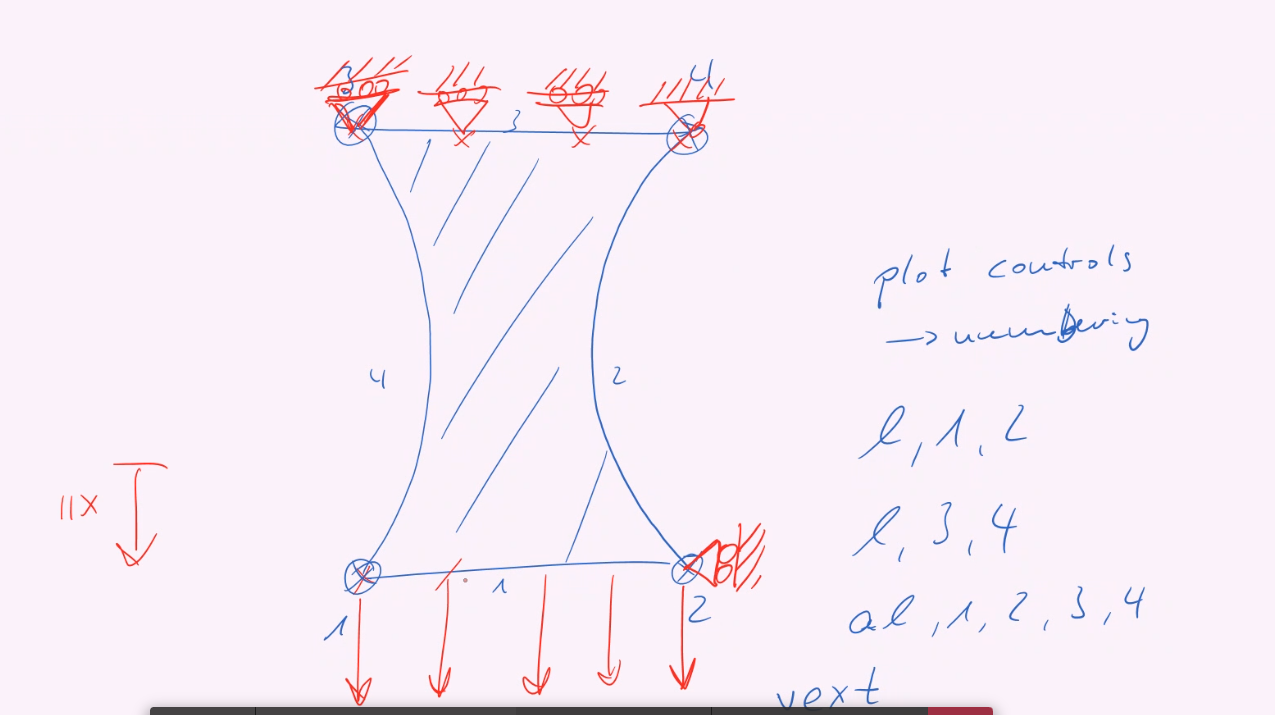 3 4
3
4 2
11x
1
1 2
plot controls
→ numbering
l, 1, 2
l, 3, 4
al, 1, 2, 3, 4
vext